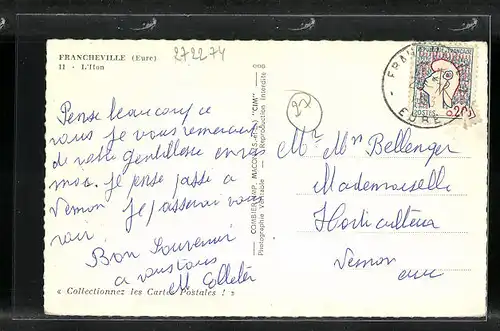 FRANCHEVILLE (Eure)
11 - L'Iton
272274
Pense beaucoup a
vous je vous remerciant
de votre gentillesse envers
moi. Je pense passé a
Vernon je passerai vous
voir.
Bon Souvenir
a vous tous
M
« Collectionnez les Cartes Postales ! »
COMBIER IMP. MACON (S.-et-L.) "CIM"
Photographie Véritable - Reproduction Interdite
27
EURE
POSTES 0,20
Mr Mm Bellenger
Mademoiselle
Horticulteur
Vernon
eure